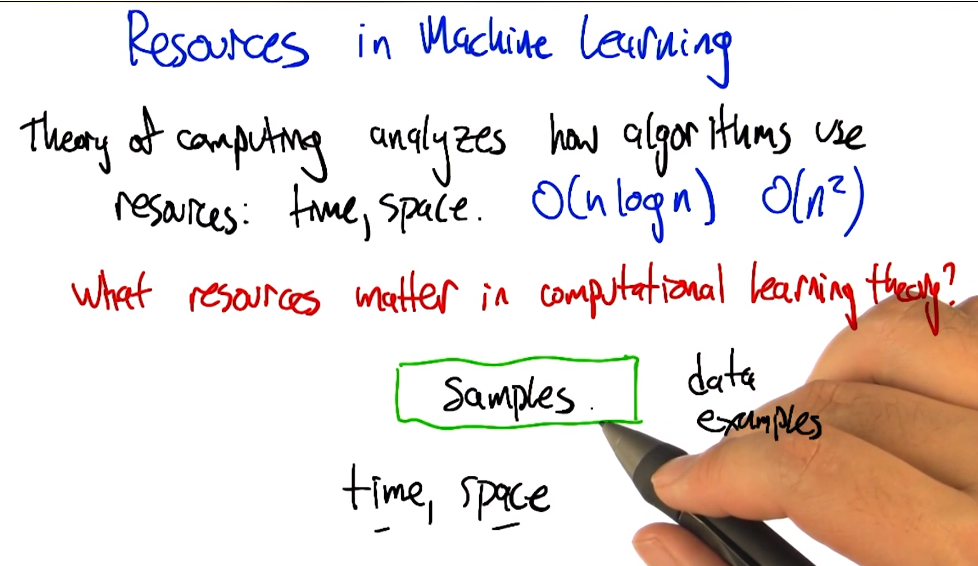 Resources in Machine Learning
Theory of computing analyzes how algorithms use
resources: time, space. O(n log n) O(n²)
What resources matter in computational learning theory?
Samples.
data
examples
time, space